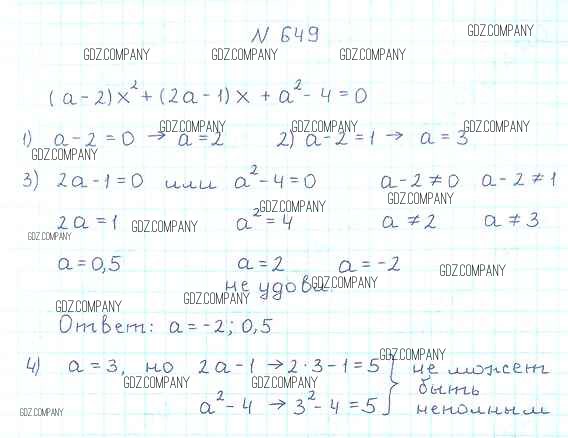 N 649
GDZ.COMPANY
GDZ.COMPANY GDZ.COMPANY GDZ.COMPANY
(a-2)x²+(2a-1)x+a²-4=0
1) a-2=0 → a=2 2) a-2=1 → a=3
GDZ.COMPANY GDZ.COMPANY GDZ.COMPANY
GDZ.COMPANY
3) 2a-1=0 или a²-4=0 a-2≠0 a-2≠1
GDZ.COMPANY GDZ.COMPANY
2a=1 a²=4 a≠2 a≠3
GDZ.COMPANY
GDZ.COMPANY
a=0,5 a=2 a=-2
GDZ.COMPANY
не удовл.
GDZ.COMPANY
GDZ.COMPANY GDZ.COMPANY
Ответ: a=-2; 0,5
GDZ.COMPANY
4) a=3, но 2a-1 → 2·3-1=5 } не может
GDZ.COMPANY GDZ.COMPANY быть
a²-4 → 3²-4=5 неполным
GDZ.COMPANY